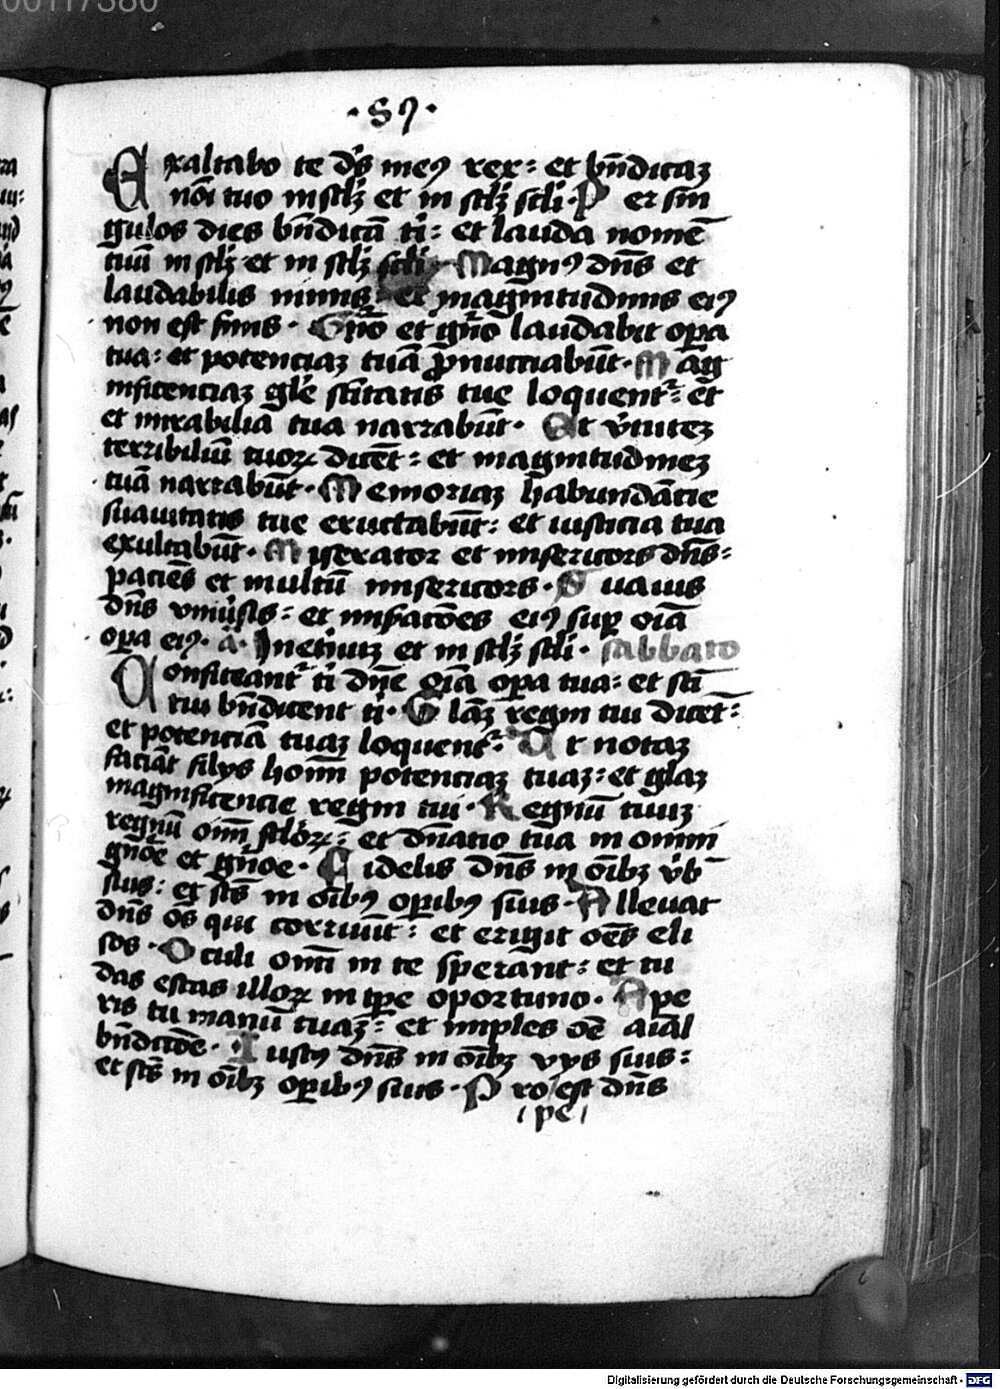 00117380
· S⁊ ·
Exaltabo te dꝰs meꝰ rex: et bn̄dicaꝫ
nōi tuo in sclꝫ et in sclꝫ scli · Per sin
gulos dies bn̄dicā ti: et lauda nomē
tuū in sclꝫ et in sclꝫ scli · Magnꝰ dn̄s et
laudabilis nimis: et magnitudinis eiꝰ
non est finis · Gn̄o et gn̄o laudabit opa
tua: et potenciaꝫ tuā ꝓnuctiabūt · Mag
nificenciaꝫ gle sc̄itatis tue loquent᷑: et
et mirabilia tua narrabūt · Et v̓tuteꝫ
terribiliū tuoꝝ dicēt: et magnitudineꝫ
tuā narrabūt · Memoriaꝫ habundācie
suauitatis tue eructabūt: et iusticia tua
exultabūt · Miserator et misericors dn̄s:
paciēs et multū misericors · Suauis
dn̄s vniūsis: et mīsacōes eiꝰ suꝑ oīa
opa eiꝰ · a · In et̄nuꝫ et in sclꝫ scli · sabbato
Confiteant᷑ ti dn̄e oīa opa tua: et scī
tui bn̄dicent ti · Glāꝫ regni tui dicēt:
et potenciā tuaꝫ loquent᷑: Ut notaꝫ
faciāt filys hoīm potenciaꝫ tuaꝫ: et glaꝫ
magnificencie regni tui · Regnū tuuꝫ
regnū oīm scloꝝ: et dn̄atio tua in omni
gn̄oe et gn̄oe · Fidelis dn̄s in oībꝫ v̓b
suis: et scs̄ in oībꝰ opibꝰ suis · Alleuat
dn̄s oēs qui corruūt: et erigit oēs eli
sos · Oculi oīm in te sperānt: et tu
das escas illoꝝ in tp̄e oportuno · Ape
ris tu manū tuaꝫ: et imples oē aīal
bn̄dicōe · Iustꝰ dn̄s in oībꝫ vys suis:
et scs̄ in oībꝫ opibꝰ suis · Pro/est dn̄s
/pe/
Digitalisierung gefördert durch die Deutsche Forschungsgemeinschaft · DFG